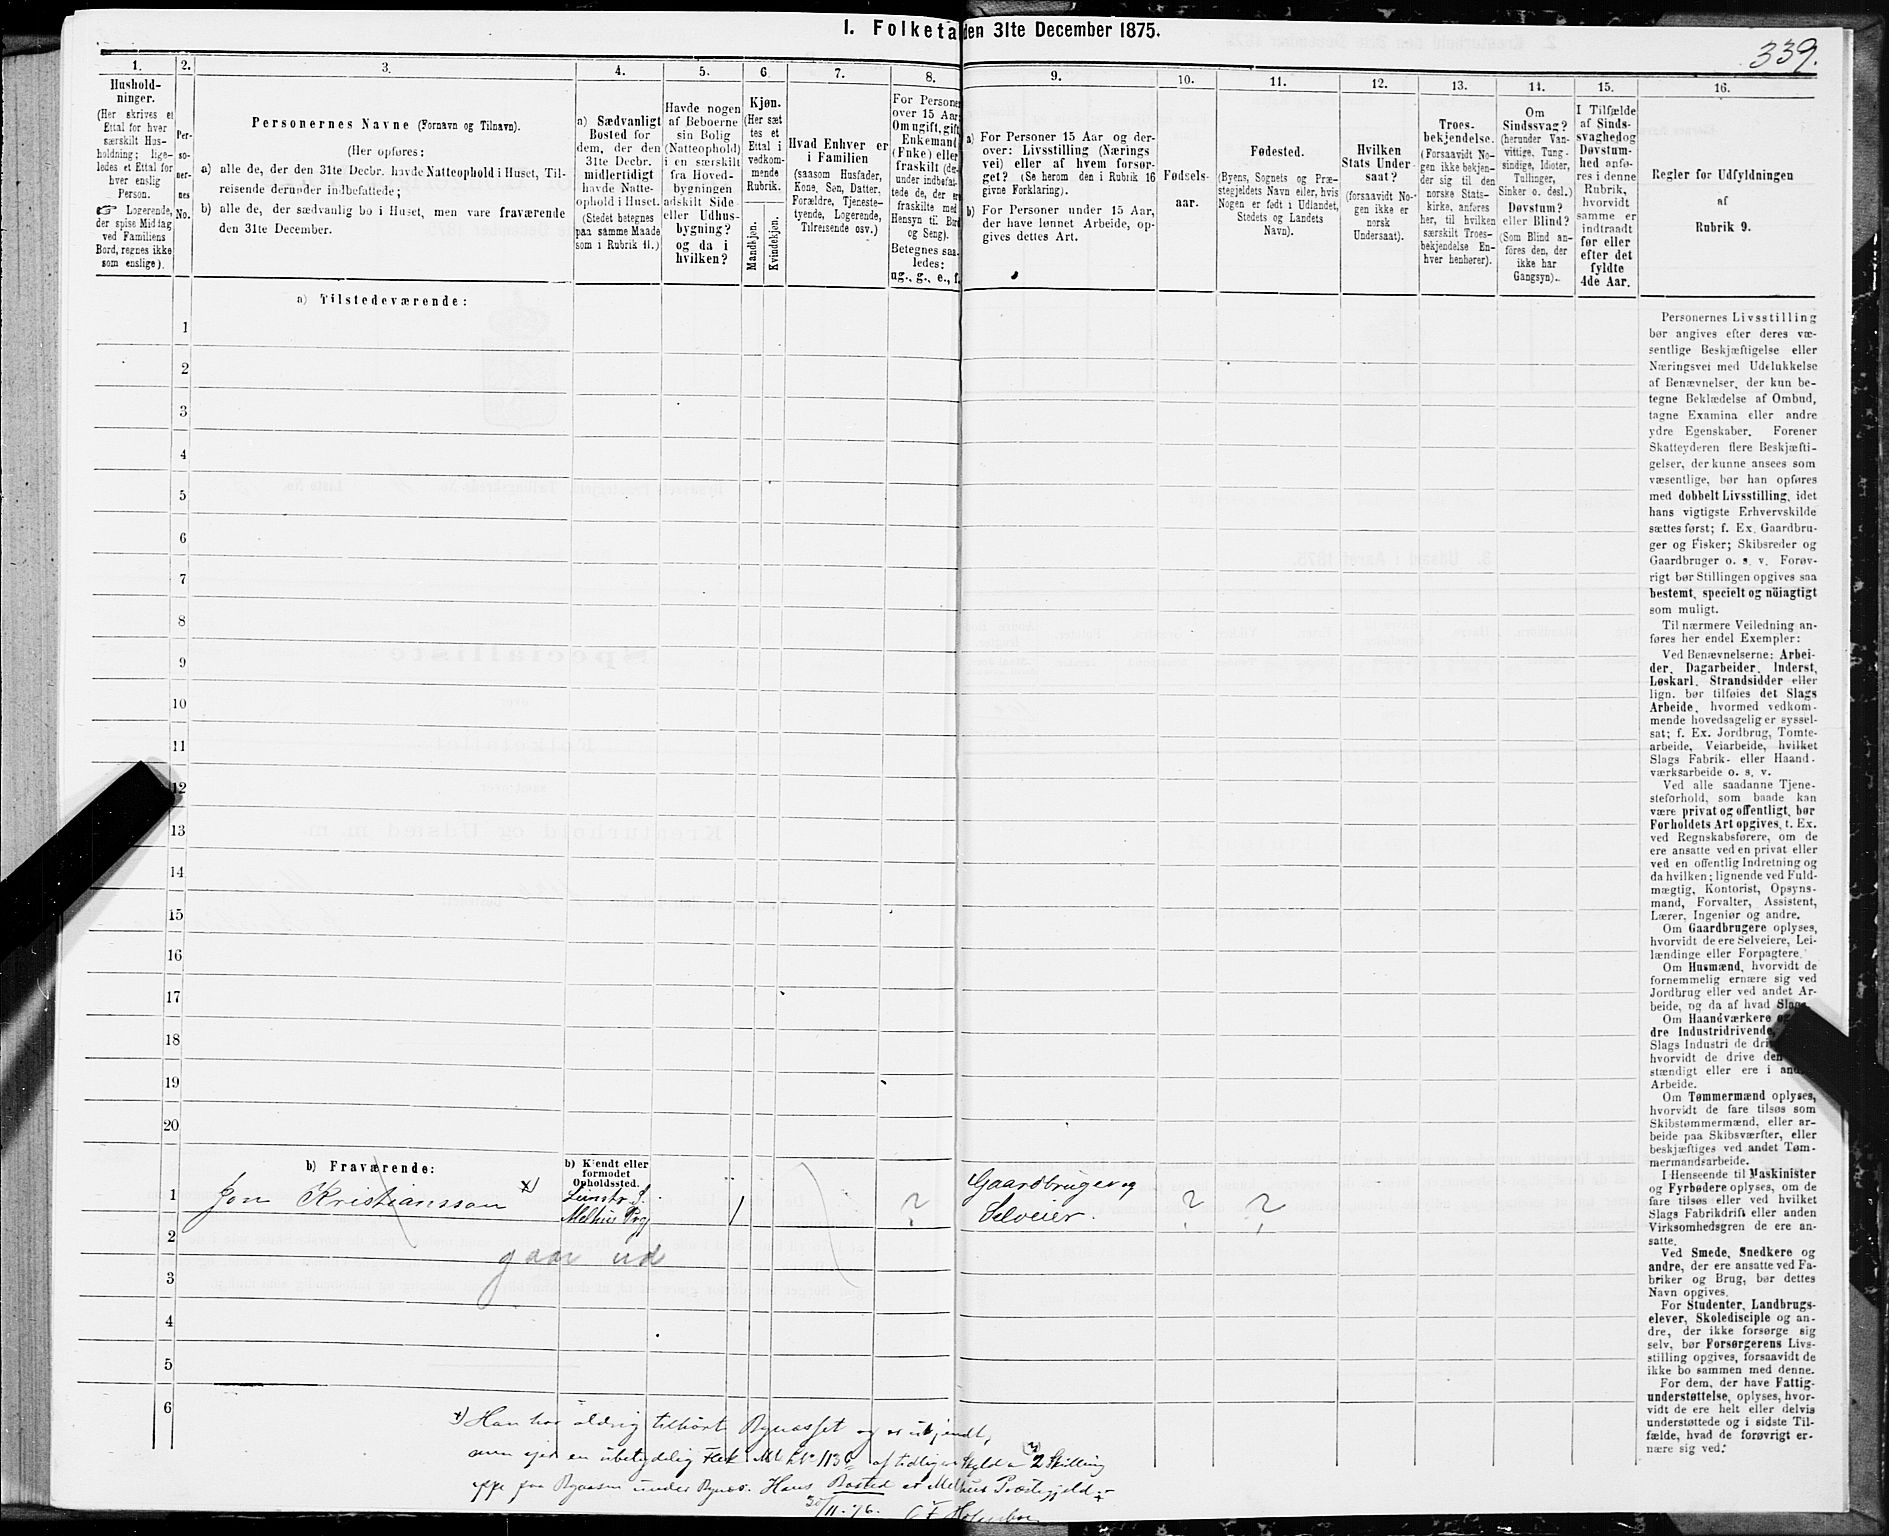 I. Folketa den 31te December 1875.
339.
1.
Hushold-
ninger.
(Her skrives et
Ettal for hver
særskilt Hus-
holdning; lige-
ledes et Ettal for
hver enslig
Person.
☞ Logerende,
der spise Middag
ved Familiens
Bord, regnes ikke
som enslige).
2.
Per-
so-
ner-
nes
No.
3.
Personernes Navne (Fornavn og Tilnavn).
(Her opføres:
a) alle de, der den 31te Decbr. havde Natteophold i Huset, Til-
reisende derunder indbefattede;
b) alle de, der sædvanlig bo i Huset, men vare fraværende
den 31te December.
4.
a) Sædvanligt
Bosted for
dem, der den
31te Decbr.
midlertidigt
havde Natte-
ophold i Huset.
(Stedet betegnes
paa samme Maade
som i Rubrik 11.)
5.
Havde nogen
af Beboerne
sin Bolig
(Natteophold)
i en særskilt
fra Hoved-
bygningen
adskilt Side-
eller Udhus-
bygning?
og da i
hvilken?
6
Kjøn.
(Her sæt
tes et
Ettal i
vedkom-
mende
Rubrik.
Mandkjøn.
Kvindekjøn.
7.
Hvad Enhver er
i Familien
(saasom Husfader,
Kone, Søn, Datter,
Forældre, Tjeneste-
tyende, Logerende,
Tilreisende osv.)
8.
For Persone
over 15 Aar
Om ugift, gift
Enkemand
(Enke) eller
fraskilt (der-
under indbefat-
tede de, der er
fraskilte med
Hensyn til Bord
og Seng).
Betegnes saa-
ledes:
ug., g., e., f.
9.
a) For Personer 15 Aar og der-
over: Livsstilling (Nærings
vei) eller af hvem forsør-
get? (Se herom den i Rubrik 16
givne Forklaring).
b) For Personer under 15 Aar,
der have lønnet Arbeide, op-
gives dettes Art.
10.
Fødsels-
aar.
11.
Fødested.
(Byens, Sognets og Præ-
stegjeldets Navn eller, hvis
Nogen er født i Udlandet,
Stedets og Landets
Navn).
12.
Hvilken
Stats Under-
saat?
(forsaavidt No-
gen ikke er
norsk
Undersaat).
13.
Troes-
bekjendelse.
(Forsaavidt No-
gen ikke bekjen-
der sig til den
norske Stats-
kirke, anføres
her, til hvilken
særskilt Troes-
bekjendelse En-
hver henhører).
14.
Om
Sindssvag?
(herunder Van-
vittige, Tung-
sindige, Idioter,
Tullinger,
Sinker o. desl.)
Døvstum?
eller Blind?
(Som Blind an-
føres den, der
ikke har
Gangsyn).
15.
I Tilfælde
af Sinds-
svaghed og
Døvstum-
hed anfø-
res i denne
Rubrik,
hvorvidt
samme er
indtraadt
før eller
efter det
fyldte
4de Aar.
16.
Regler for Udfyldningen
af
Rubrik 9.
a) Tilstedeværende:
1
2
3
4
5
6
7
8
9
10
11
12
13
14
15
16
17
18
19
20
Personernes Livsstilling
bør angives efter deres væ-
sentlige Beskjæftigelse eller
Næringsvei med Udelukkelse
af Benævnelser, der kun be-
tegne Beklædelse af Ombud,
tagne Examina eller andre
ydre Egenskaber. Forener
Skatteyderen flere Beskjæfti-
gelser, der kunne ansees som
væsentlige, bør han opføres
med dobbelt Livsstilling, idet
hans vigtigste Erhvervskilde
sættes først; f. Ex. Gaardbru-
ger og Fisker; Skibsreder og
Gaardbruger o. s. v. Forøv-
rigt bør Stillingen opgives saa
bestemt, specielt og nøiagtigt
som muligt.
Til nærmere Veiledning an-
føres her endel Exempler:
Ved Benævnelserne: Arbei-
der, Dagarbeider, Inderst,
Løskarl, Strandsidder eller
lign. bør tilføies det Slags
Arbeide, hvormed vedkom-
mende hovedsagelig er syssel-
sat; f. Ex. Jordbrug, Tomte-
arbeide, Veiarbeide, hvilket
Slags Fabrik- eller Haand-
værksarbeide o. s. v.
Ved alle saadanne Tjene-
steforhold, som baade kan
være privat og offentligt, bør
Forholdets Art opgives, t. Ex.
ved Regnskabsførere, om de
ere ansatte ved en privat eller
ved en offentlig Indretning og
da hvilken; lignende ved Fuld-
mægtig, Kontorist, Opsyns-
mand, Forvalter, Assistent,
Lærer, Ingeniør og andre.
Om Gaardbrugere oplyses,
hvorvidt de ere Selveiere, Lei-
lændinge eller Forpagtere.
Om Husmænd, hvorvidt de
fornemmelig ernære sig ved
Jordbrug eller ved andet Ar-
beide, og da af hvad Slags.
Om Haandværkere o
dre Industridrivende,
Slags Industri de dri
hvorvidt de drive den
stændigt eller ere i and
Arbeide.
Om Tømmermænd oplyses,
hvorvidt de fare tilsøs som
Skibstømmermænd, eller ar-
beide paa Skibsværfter, eller
beskjæftiges ved andet Tøm-
mermandsarbeide.
I Henseende til Maskinister
og Fyrbødere oplyses, om de
fare tilsøs eller ved hvilket
Slags Fabrikdrift eller anden
Virksomhedsgren de ere an-
satte.
Ved Smede, Snedkere og
andre, der ere ansatte ved Fa-
briker og Brug, bør dettes
Navn opgives.
For Studenter, Landbrugs-
elever, Skoledisciple og an-
dre, der ikke forsørge sig
selv, bør Forsørgerens Livs-
stilling opgives, forsaavidt de
ikke bo sammen med denne.
For dem, der have Fattig-
understøttelse, oplyses, hvor-
vidt de ere helt eller delvis
understøttede og i sidste Til-
fælde, hvad de forøvrigt er-
nære sig ved.
b) Fraværende:
b) Kjendt eller
formodet
Opholdssted.
1 Jon Kristiansson x) Leinstr. S. Melhus Prgj 1 ? Gaardbruger og Selveier. ? ?
2 gaar ud
3
4
5
6
x) Han har aldrig tilhørt Bynæsset og er ukjendt,
men ejer en ubetydelig Flek M. L. No 113 af tidligere Skyld 2 Skilling
oppe paa Byaasen under Bynes. Hans Bosted er Melhus Præstegjeld.
30/11.76. CF Holmboe